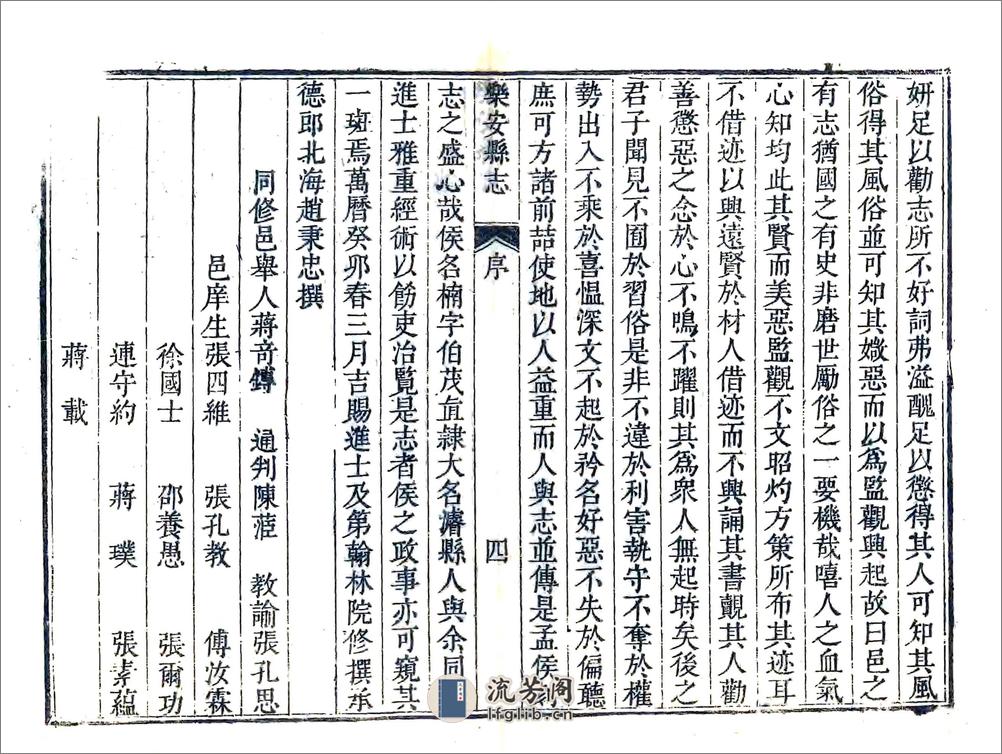 妍足以勸志所不好詞弗溢醜足以懲得其人可知其風
俗得其風俗並可知其媺惡而以爲監觀興起故曰邑之
有志猶國之有史非磨世厲俗之一要機哉嘻人之血氣
心知均此其賢而美惡監觀不文昭灼方策所布其迹耳
不借迹以興遠賢於材人借迹而不興誦其書觀其人勸
善懲惡之念於心不鳴不躍則其爲衆人無起時矣後之
君子聞見不囿於習俗是非不違於利害執守不奪於權
勢出入不乘於喜慍深文不起於矜名好惡不失於偏聽
庶可方諸前喆使地以人益重而人與志並傳是孟侯
樂安縣志 序 四
志之盛心哉侯名楠字伯茂直隸大名濬縣人與余同
進士雅重經術以飭吏治覽是志者侯之政事亦可窺其
一斑焉萬曆癸夘春三月吉賜進士及第翰林院修撰承
德郎北海趙秉忠撰
同修邑舉人蔣奇鏄 通判陳蒞 教諭張孔思
邑庠生張四維 張孔教 傅汝霖
徐國士 邵養愚 張爾功
連守約 蔣璞 張素蘊
蔣載
流芳阁
lfglib.cn